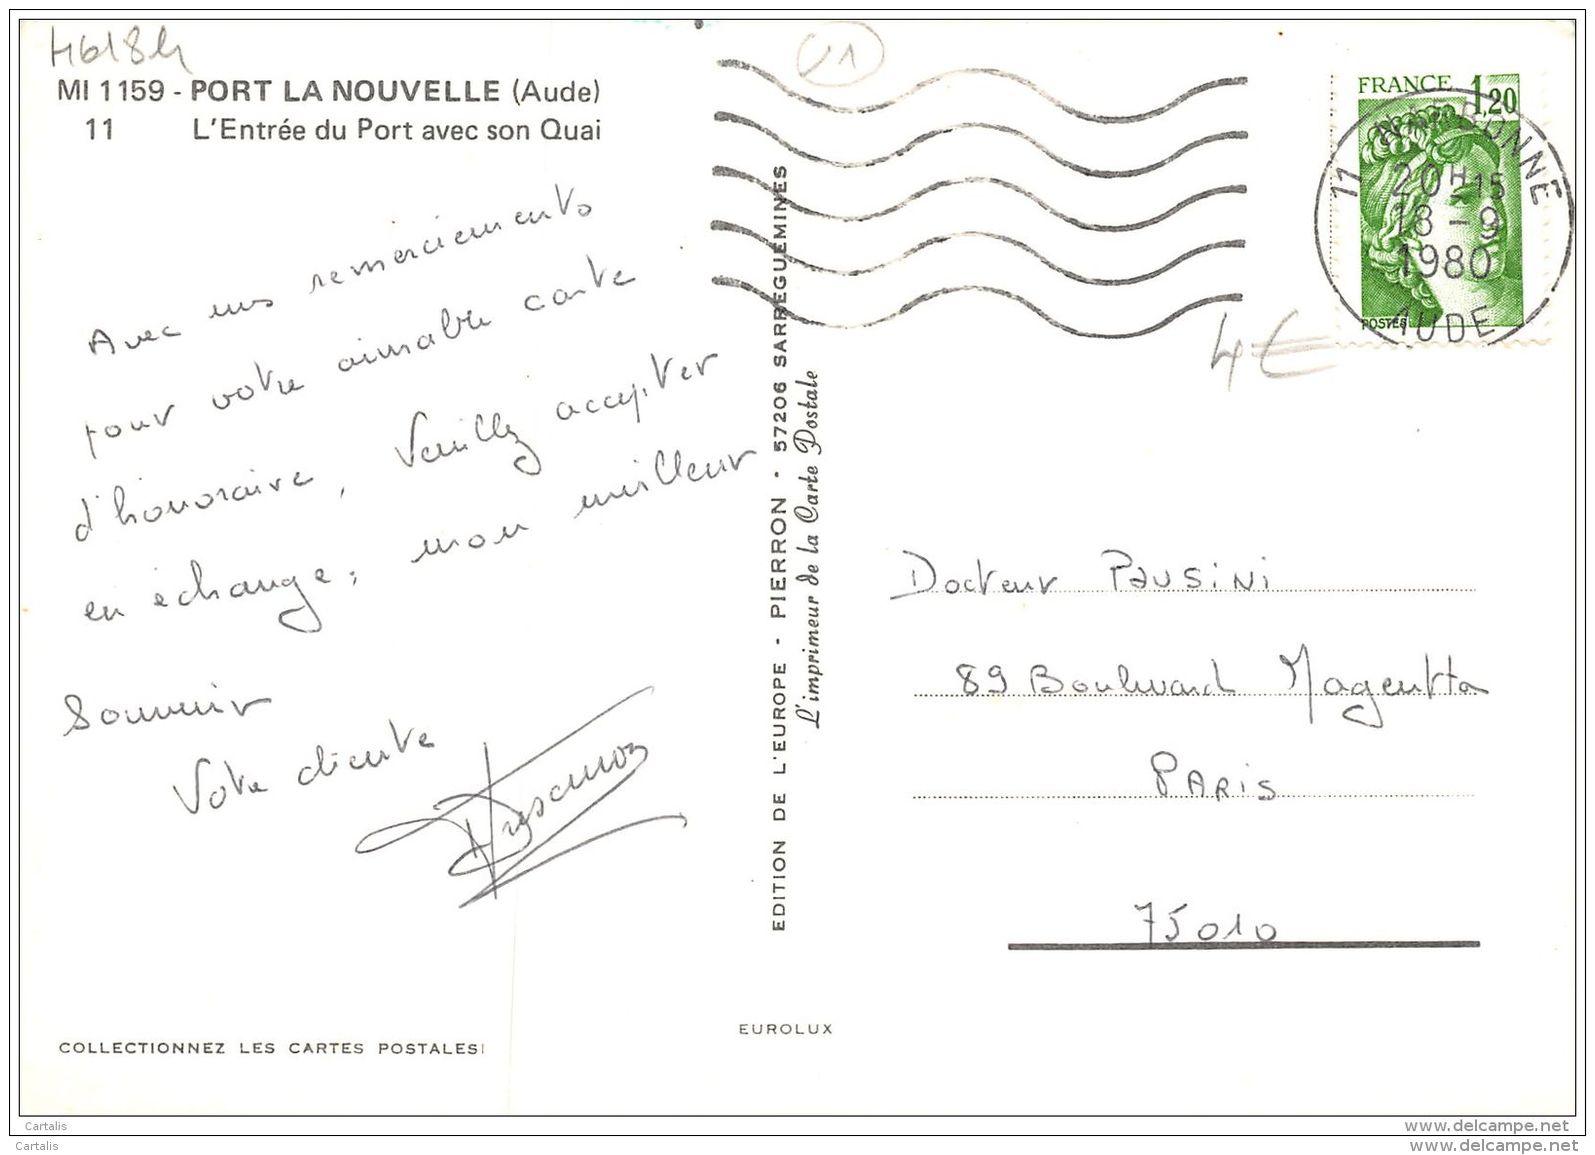 H618h
MI 1159 - PORT LA NOUVELLE (Aude)
11 L'Entrée du Port avec son Quai
Avec mes remerciements
pour votre aimable carte
d'honoraire, Veuillez accepter
en échange, mon meilleur
Souvenir
Votre cliente
EDITION DE L'EUROPE - PIERRON - 57206 SARREGUEMINES
L'imprimeur de la Carte Postale
V1
FRANCE 1,20
POSTES
11 NARBONNE
20H15
18 - 9
1980
AUDE
4€
Docteur PAUSiNi
89 Boulevard Magentta
PARis
75010
EUROLUX
COLLECTIONNEZ LES CARTES POSTALES!
Cartalis
Cartalis
www.delcampe.net
www.delcampe.net